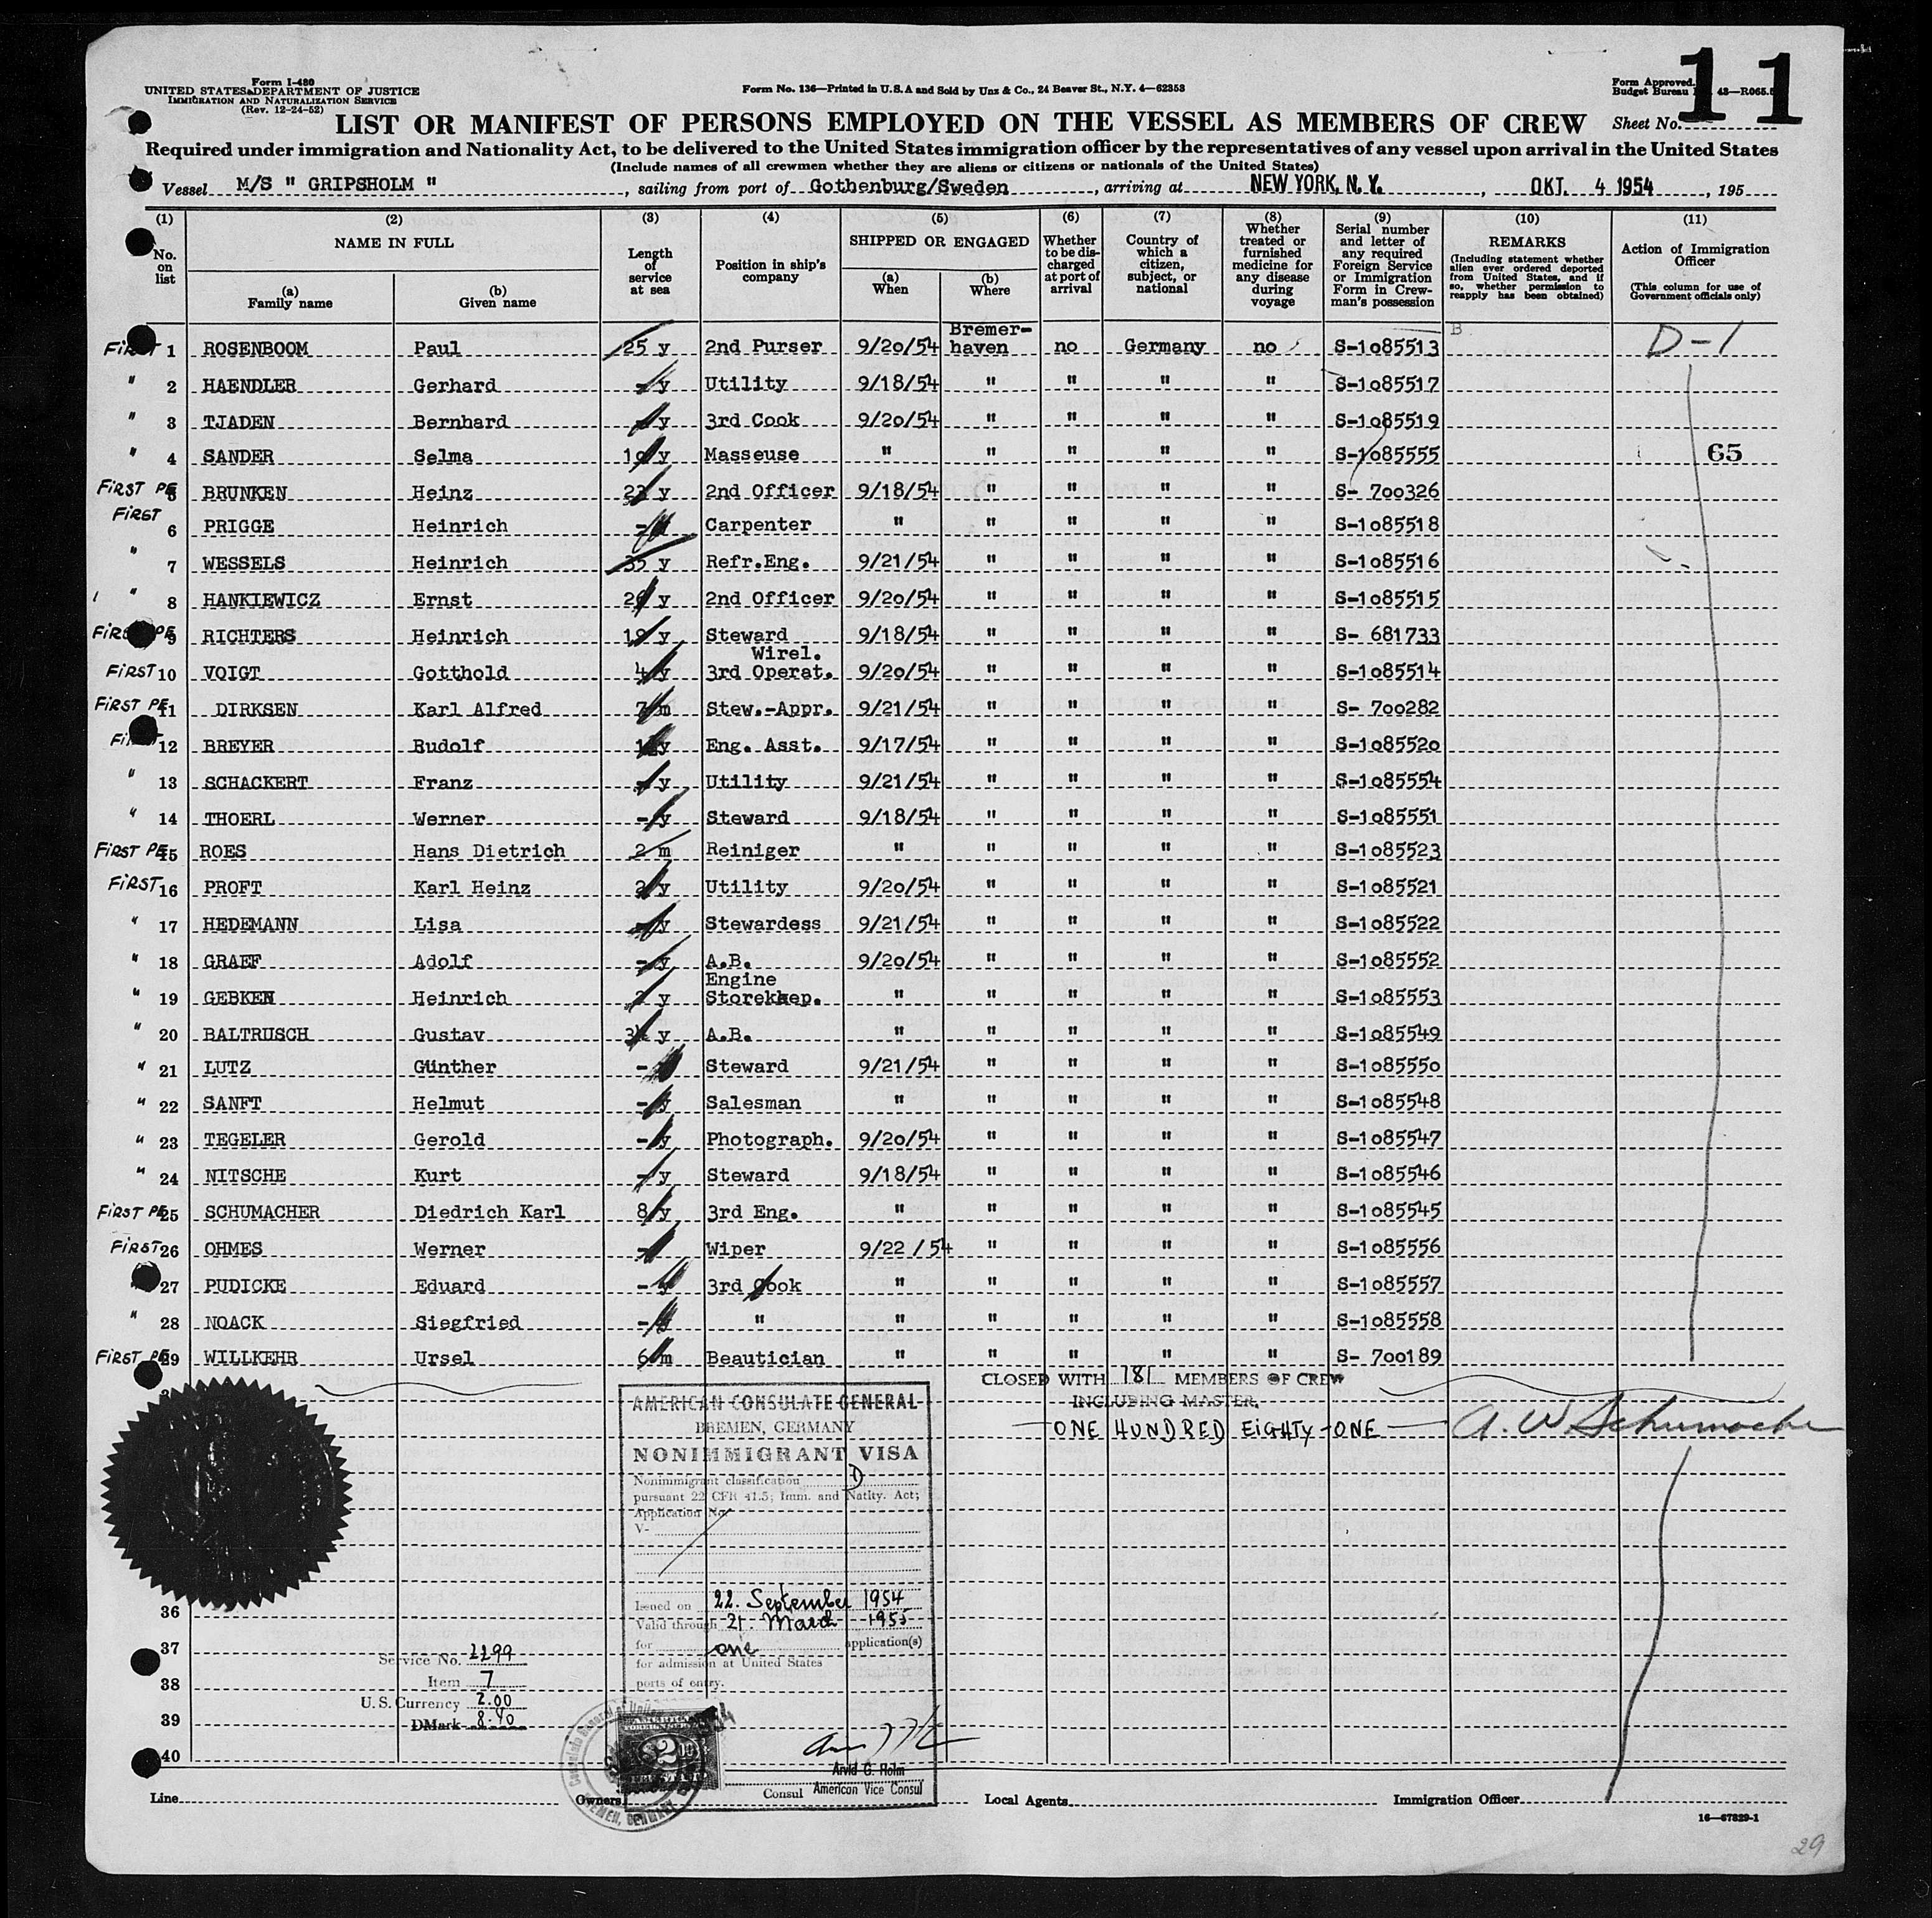 Form I-480
UNITED STATES DEPARTMENT OF JUSTICE
IMMIGRATION AND NATURALIZATION SERVICE
(Rev. 12-24-52)
Form No. 136—Printed in U.S.A and Sold by Unz & Co., 24 Beaver St., N.Y. 4—62353
Form Approved.
Budget Bureau 43—R065.
11
LIST OR MANIFEST OF PERSONS EMPLOYED ON THE VESSEL AS MEMBERS OF CREW Sheet No.
Required under immigration and Nationality Act, to be delivered to the United States immigration officer by the representatives of any vessel upon arrival in the United States
(Include names of all crewmen whether they are aliens or citizens or nationals of the United States)
Vessel M/S " GRIPSHOLM ", sailing from port of Gothenburg/Sweden, arriving at NEW YORK, N.Y., OKT. 4 1954, 195
(1) (2) (3) (4) (5) (6) (7) (8) (9) (10) (11)
No. on list
NAME IN FULL
(a) Family name
(b) Given name
Length of service at sea
Position in ship's company
SHIPPED OR ENGAGED
(a) When
(b) Where
Whether to be discharged at port of arrival
Country of which a citizen, subject, or national
Whether treated or furnished medicine for any disease during voyage
Serial number and letter of any required Foreign Service or Immigration Form in Crewman's possession
REMARKS
(Including statement whether alien ever ordered deported from United States, and if so, whether permission to reapply has been obtained)
Action of Immigration Officer
(This column for use of Government officials only)
FIRST 1 ROSENBOOM Paul 25 y 2nd Purser 9/20/54 Bremerhaven no Germany no S-1085513 D-1
" 2 HAENDLER Gerhard y Utility 9/18/54 " " " " S-1085517
" 3 TJADEN Bernhard y 3rd Cook 9/20/54 " " " " S-1085519
" 4 SANDER Selma y Masseuse " " " " " S-1085555 65
FIRST PE 5 BRUNKEN Heinz y 2nd Officer 9/18/54 " " " " S- 700326
FIRST 6 PRIGGE Heinrich - Carpenter " " " " " S-1085518
" 7 WESSELS Heinrich 35 y Refr.Eng. 9/21/54 " " " " S-1085516
" 8 HANKIEWICZ Ernst y 2nd Officer 9/20/54 " " " " S-1085515
FIRST PE 9 RICHTERS Heinrich y Steward 9/18/54 " " " " S- 681733
FIRST 10 VOIGT Gotthold 4 y Wirel. 3rd Operat. 9/20/54 " " " " S-1085514
FIRST PE 11 DIRKSEN Karl Alfred 7 m Stew.-Appr. 9/21/54 " " " " S- 700282
FIRST 12 BREYER Rudolf y Eng. Asst. 9/17/54 " " " " S-1085520
" 13 SCHACKERT Franz y Utility 9/21/54 " " " " S-1085554
" 14 THOERL Werner - y Steward 9/18/54 " " " " S-1085551
FIRST PE 15 ROES Hans Dietrich 2 m Reiniger " " " " " S-1085523
FIRST 16 PROFT Karl Heinz 2 y Utility 9/20/54 " " " " S-1085521
" 17 HEDEMANN Lisa y Stewardess 9/21/54 " " " " S-1085522
" 18 GRAEF Adolf - y A.B. 9/20/54 " " " " S-1085552
" 19 GEBKEN Heinrich y Engine Storekkep. " " " " " S-1085553
" 20 BALTRUSCH Gustav y A.B. " " " " " S-1085549
" 21 LUTZ Günther - Steward 9/21/54 " " " " S-1085550
" 22 SANFT Helmut - y Salesman " " " " " S-1085548
" 23 TEGELER Gerold - y Photograph. 9/20/54 " " " " S-1085547
" 24 NITSCHE Kurt - y Steward 9/18/54 " " " " S-1085546
FIRST PE 25 SCHUMACHER Diedrich Karl 8 y 3rd Eng. " " " " " S-1085545
FIRST 26 OHMES Werner - Wiper 9/22 / 54 " " " " S-1085556
" 27 PUDICKE Eduard - y 3rd Cook " " " " " S-1085557
" 28 NOACK Siegfried - " " " " " " S-1085558
FIRST PE 29 WILLKEHR Ursel 6 m Beautician " " " " " S- 700189
CLOSED WITH 181 MEMBERS OF CREW
INCLUDING MASTER.
—ONE HUNDRED EIGHTY-ONE— A. W Schumacher
AMERICAN CONSULATE GENERAL
BREMEN, GERMANY
NONIMMIGRANT VISA
Nonimmigrant classification D
pursuant 22 CFR 41.5; Imm. and Natlty. Act;
Application No.
V-
Issued on 22. September 1954
Valid through 21. March 1955
for one application(s)
for admission at United States
ports of entry.
36
37
38
39
40
Service No. 2299
Item 7
U.S. Currency 2.00
DMark 8.40
Arvid G. Holm
Consul American Vice Consul
Line Owners Local Agents Immigration Officer
16—67829-1
29